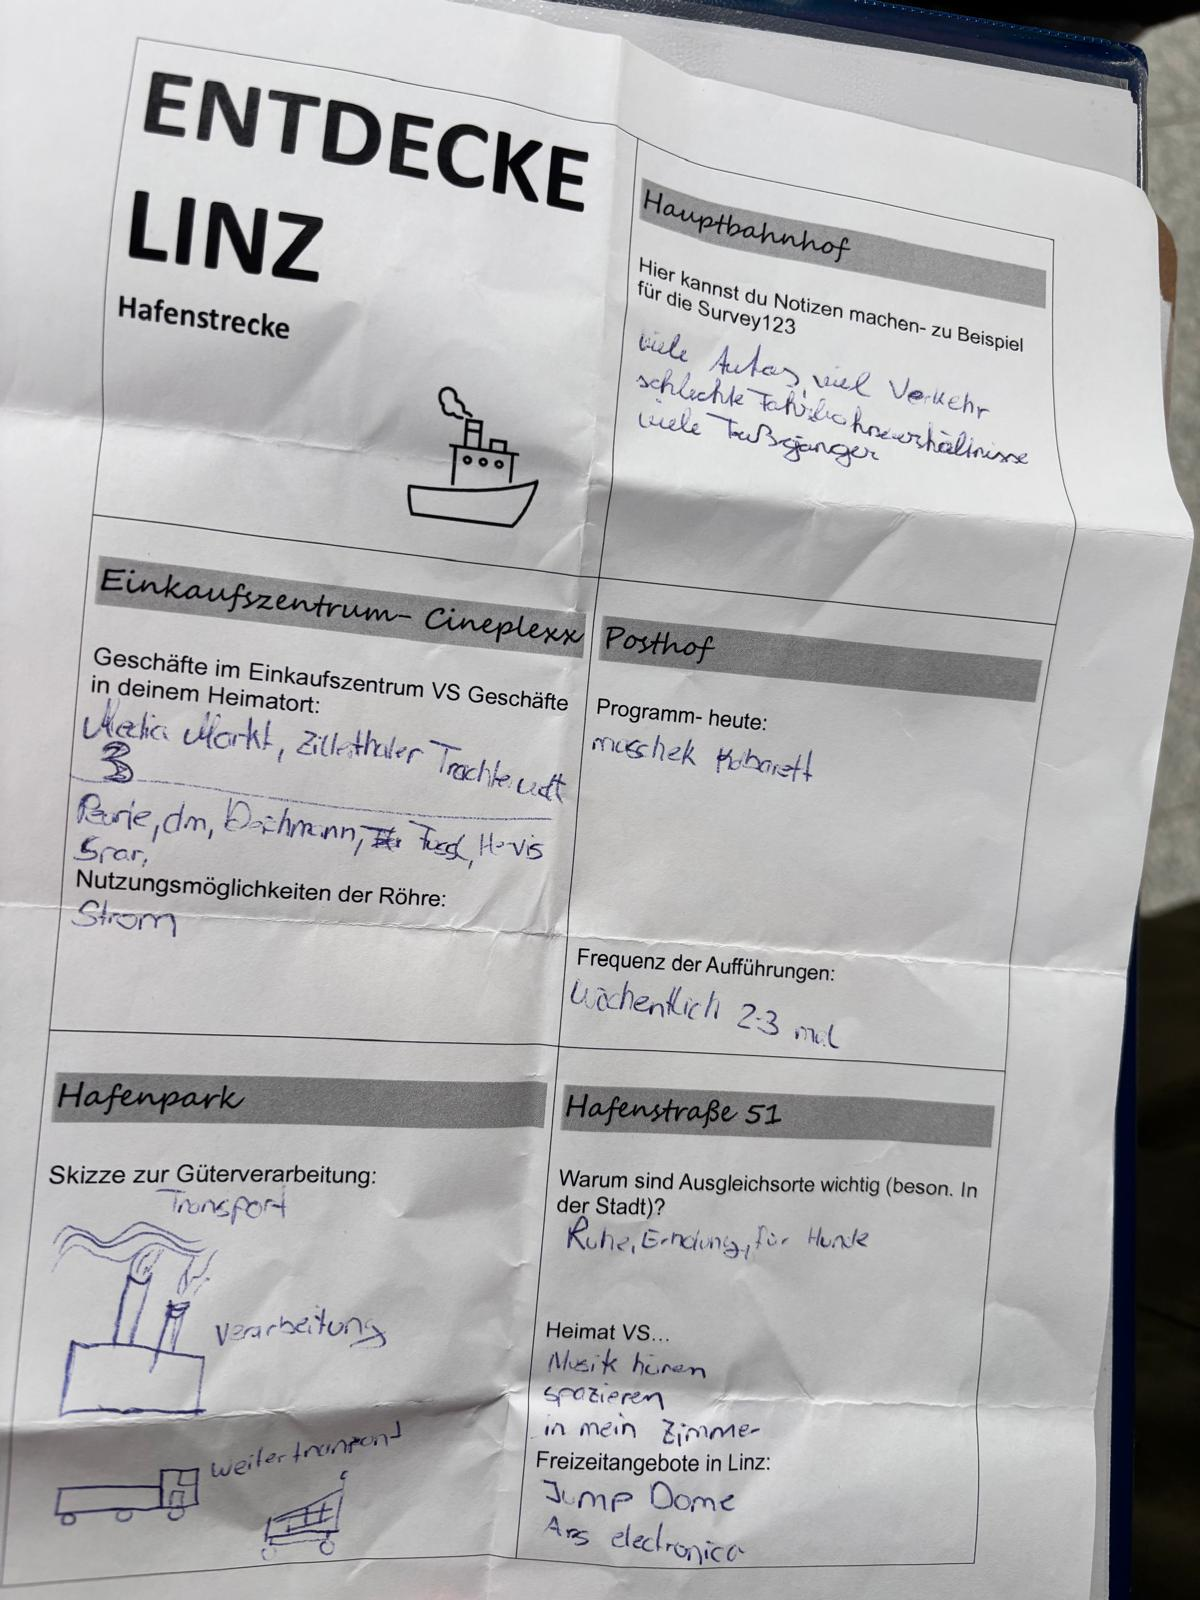 ENTDECKE
LINZ
Hafenstrecke
Hauptbahnhof
Hier kannst du Notizen machen- zu Beispiel
für die Survey123
viele Autos, viel Verkehr
schlechte Fahrbahnverhältnisse
viele Fußgänger
Einkaufszentrum- Cineplexx
Geschäfte im Einkaufszentrum VS Geschäfte
in deinem Heimatort:
Media Markt, Zillerthaler
3
dm, Fussl, Hervis
Spar,
Nutzungsmöglichkeiten der Röhre:
Strom
Posthof
Programm- heute:
maschek Kabarett
Frequenz der Aufführungen:
Wöchentlich 2-3 mal
Hafenpark
Skizze zur Güterverarbeitung:
Transport
Verarbeitung
Weitertransport
Hafenstraße 51
Warum sind Ausgleichsorte wichtig (beson. In
der Stadt)?
Ruhe, Erholung, für Hunde
Heimat VS...
Musik hören
spazieren
in mein Zimmer
Freizeitangebote in Linz:
Jump Dome
Ars electronica